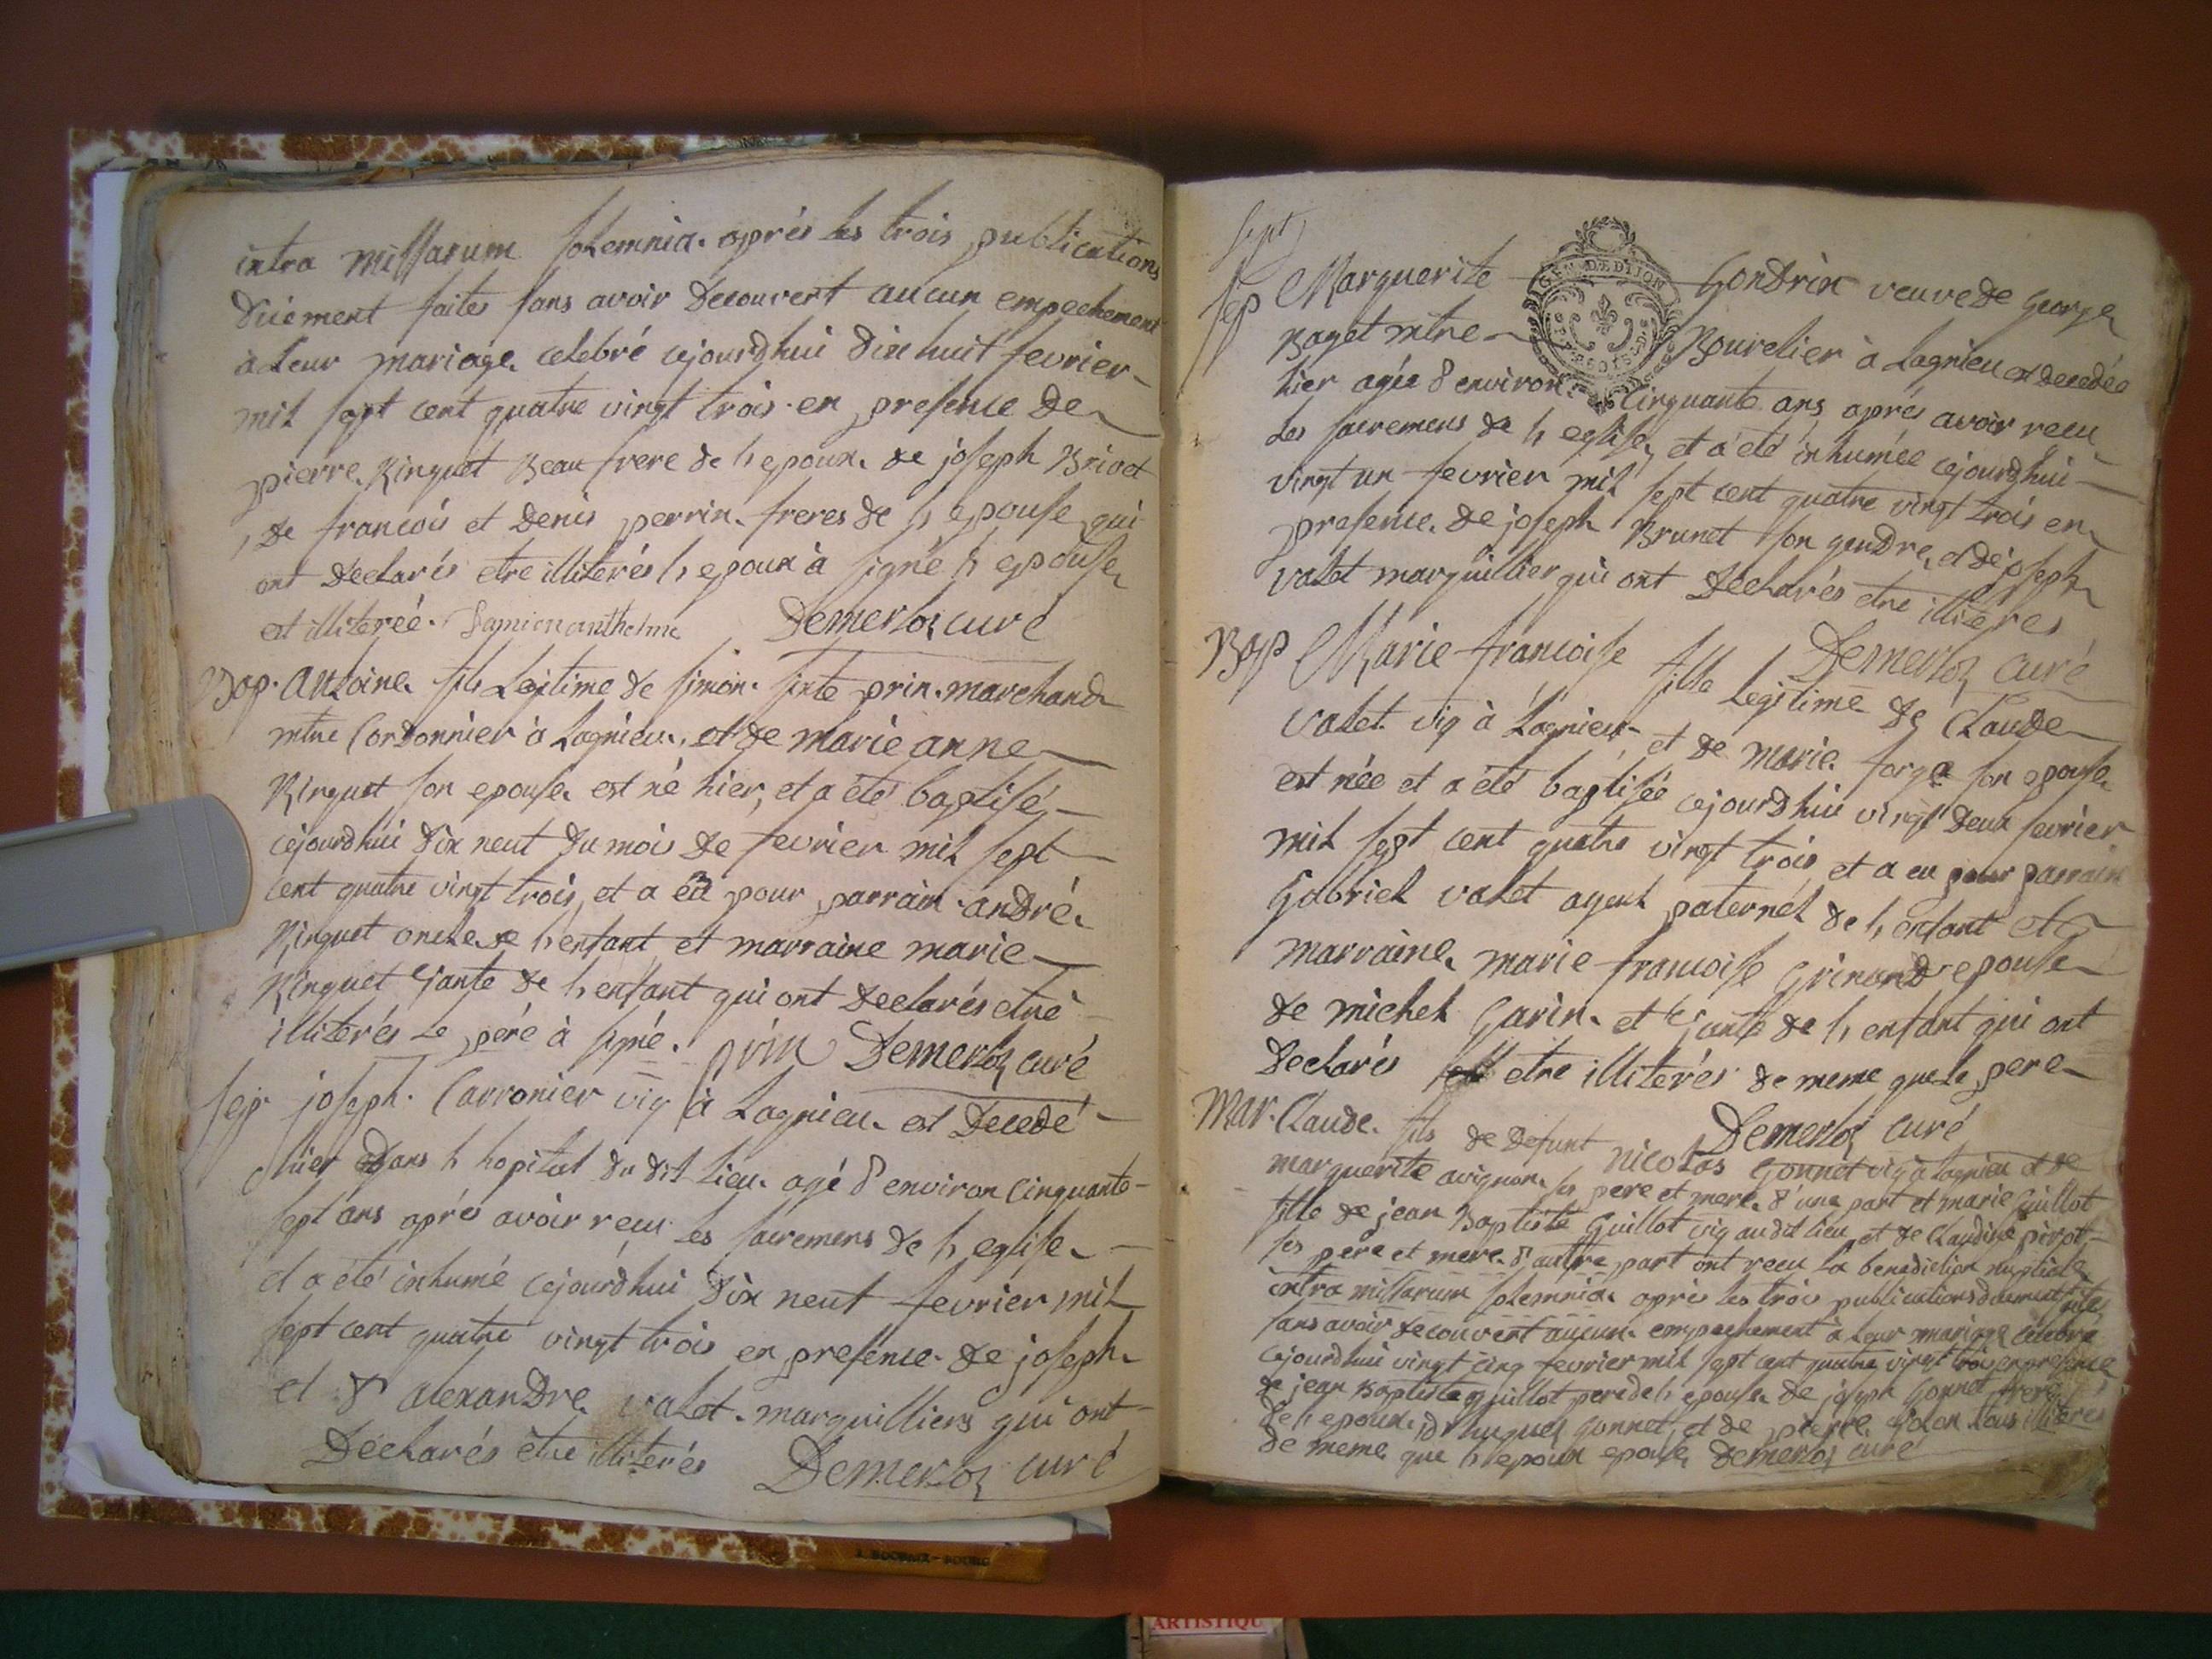 intra missarum solemnia. aprés les trois publications
duëment faites sans avoir decouvert aucun empechement
à leur mariage. celebré cejourdhui dix huit fevrier
mil sept cent quatre vingt trois. en presence de
pierre. Ringuet Beau frere de l'epoux. de joseph Brivet
, de francois et Denis perrin. freres de l'epouse qui
ont declarés etre illiterés l'epoux à signé l'epouse
est illiterée. Damien anthelme Demerloz curé
Bap. Antoine. fils Legitime de simon. sixte prin. marchand
mtre Cordonnier à Lagnieu. et de marie anne
Ringuet son epouse. est né hier, et a été baptisé
cejourdhui dix neuf du mois de fevrier mil sept
cent quatre vingt trois, et a eu pour parrain. andré.
Ringuet oncle de l'enfant et marraine marie
Ringuet Tante de l'enfant qui ont declarés etre
illiterés Le pére à signé. prin Demerloz curé
sep. joseph. Carronier vig à Lagnieu. est decedé
hier dans l'hopital du dit Lieu. agé d'environ Cinquante
sept ans aprés avoir recu Les sacremens de l'eglise.
et a été inhumé cejourdhui dix neuf fevrier mil
sept cent quatre vingt trois en presence. de joseph.
et d'alexandre. valet. marguilliers qui ont
Declarés être illiterés Demerloz curé
sept
GEN. DE DIJON
sep Marguerite Gondrin veuve de George
Baget mtre Bourelier à Lagnieu est decedée
hier agée d'environ Cinquante ans aprés avoir recu
Les sacremens de l'eglise, et a été inhumée cejourdhui
vingt un fevrier mil sept cent quatre vingt trois en
presence. de joseph Brunet son gendre, et de joseph
valet marguillier qui ont declarés etre illiterés
Demerloz curé
Bap Marie francoise fille Legitime de Claude
valet. vig à Lagnieu. et de marie. forge son epouse.
est née et a été baptisée cejourdhui vingt deux fevrier
mil sept cent quatre vingt trois et a eu pour parrain
Gabriel valet ayeul paternel de l'enfant et
marraine. marie francoise Grinand epouse
de michel Garin. et tante de l'enfant qui ont
declarés etre illiterés de meme que Le pere
Demerloz curé
Mar. Claude. fils de defunt nicolas Gonnet vig à lagnieu et de
marguerite avignon. ses pere et mere. d'une part et marie Guillot
fille de jean Baptiste Guillot vig audit lieu et de Claudine pirot
ses pere et mere. d'autre part ont recu La benediction nuptiale
intra missarum solemnia. aprés Les trois publications duement faites
sans avoir decouvert aucun. empechement à Leur mariage celebré
cejourdhui vingt cinq fevrier mil sept cent quatre vingt trois en presence
de jean Baptiste guillot pere de l'epouse. de joseph Gonnet frere
de l'epoux. d'hugues Gonnet et de pierre. tous illiterés
de meme. que l'epoux epouse Demerloz curé
ARTISTIQU